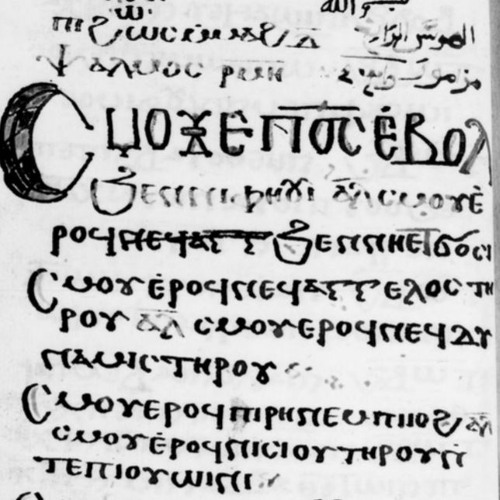 ⲡⲓϩⲱⲥ ⲙⲙⲁϩ ⲇ̄ الهوس الرابع
Ⲯⲁⲗⲙⲟⲥ ⲣⲙⲏ مزمور
Ⲥⲙⲟⲩⲉⲡϭⲥⲉⲃⲟⲗ
ϧⲉⲛⲛⲓⲫⲏⲟⲩⲓ ⲁ̅ⲗ̅ ⲥⲙⲟⲩⲉ̀
ⲣⲟϥⲛⲉϥⲁⲅⲅ ϧⲉⲛⲛⲏⲉⲧϭⲟⲥⲓ
Ⲥⲙⲟⲩⲉ̀ⲣⲟϥⲛⲉϥⲁⲅⲅⲉⲗⲟⲥ ⲧⲏ
ⲣⲟⲩ ⲁ̅ⲗ̅ ⲥⲙⲟⲩⲉⲣⲟϥⲛⲉϥⲇⲩ
ⲛⲁⲙⲓⲥⲧⲏⲣⲟⲩ
Ⲥⲙⲟⲩⲉ̀ⲣⲟϥⲡⲓⲣⲏⲛⲉⲙⲡⲓⲓⲟϩ ⲁ̅ⲗ̅
ⲥⲙⲟⲩⲉ̀ⲣⲟϥⲛⲓⲥⲓⲟⲩⲧⲏⲣⲟⲩⲛ̀
ⲧⲉⲡⲓⲟⲩⲱⲓⲛⲓ